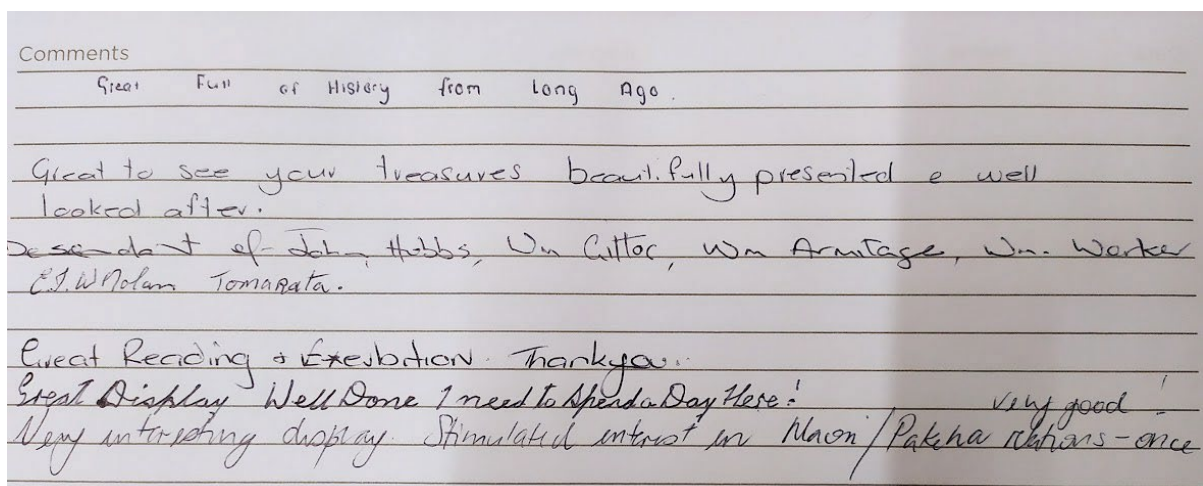 Comments
Great Full of History from Long Ago.
Great to see your treasures beautifully presented & well
looked after.
Desendant of John Hobbs, Wm Wm Armitage, Wm. Worker
Tomarata.
Great Reading & Thankyou.
Great Display Well Done I need to Spend a Day Here!
very good!
Very interesting display. Stimulated interest in Maori/Pakeha relations - once